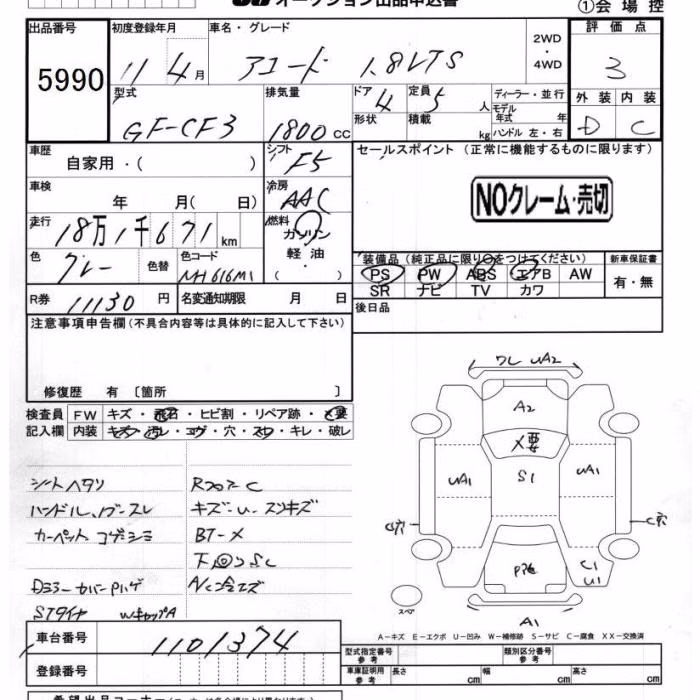 オークション出品申込書
①会場控
出品番号 初度登録年月 車名・グレード 2WD・4WD 評価点
5990 11 4月 アコード 1.8VTS 3
型式 排気量 ドア 定員 ディーラー・並行 外装 内装
GF-CF3 1800cc 4 5人 モデル年式 年 D C
形状 積載 kg ハンドル 左・右
車歴 シフト セールスポイント (正常に機能するものに限ります)
自家用・( ) F5
車検 冷房 NOクレーム・売切
年 月( 日) AAC
走行 燃料
18万1千671km ガソリン
軽油・( )
色 色替 色コード 装備品 (純正品に限り○をつけてください) 新車保証書
グレー NH616M1 PS PW ABS エアB AW 有・無
SR ナビ TV カワ
R券 11130円 名変通知期限 月 日 後日品
注意事項申告欄(不具合内容等は具体的に記入して下さい)
修復歴 有 〔箇所 〕
検査員 FW キズ・飛石・ヒビ割・リペア跡・X要
記入欄 内装 キズ・汚レ・コゲ・穴・スレ・キレ・破レ
シートヘタリ
ハンドル、ノブスレ キズ・U・スリキズ
カーペットコゲシミ BT-X
下回りSC
STタイヤ WキャップA
ワレ UA2
A2
X要
UA1 S1 UA1
C穴 C穴
C1
U1
スペア
A1
A-キズ E-エクボ U-凹み W-補修跡 S-サビ C-腐食 XX-交換済
車台番号 1101374
登録番号
型式指定番号 参考 類別区分番号 参考
車庫証明用 参考 長さ cm 幅 cm 高さ cm